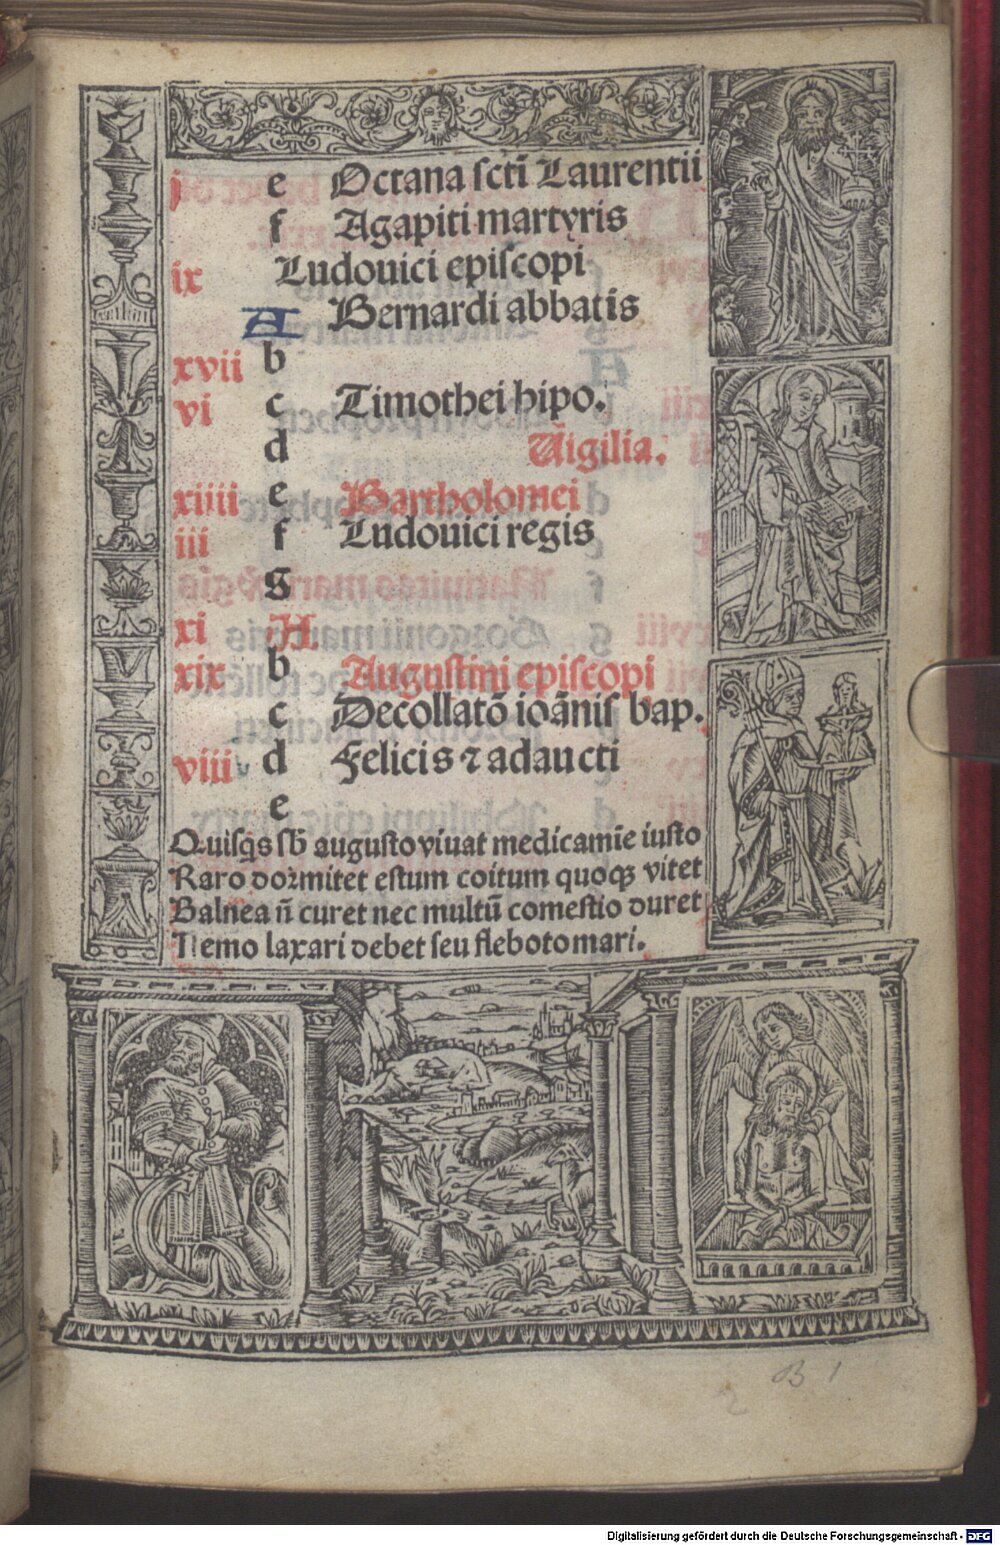 j e Octana sctī Laurentii
f Agapiti martyris
ix Ludouici episcopi
A Bernardi abbatis
xvii b
vi c Timothei hipo.
d Uigilia.
xiiii e Bartholomei
iii f Ludouici regis
g
xi A.
xix b Augustini episcopi
c Decollatō ioānis bap.
viii d Felicis ⁊ adaucti
e
Quisq̄s sb̄ augusto viuat medicamīe iusto
Raro dormitet estum coitum quoqꝫ vitet
Balnea n̄ curet nec multū comestio duret
Nemo laxari debet seu flebotomari.
B 1
2
Digitalisierung gefördert durch die Deutsche Forschungsgemeinschaft - DFG